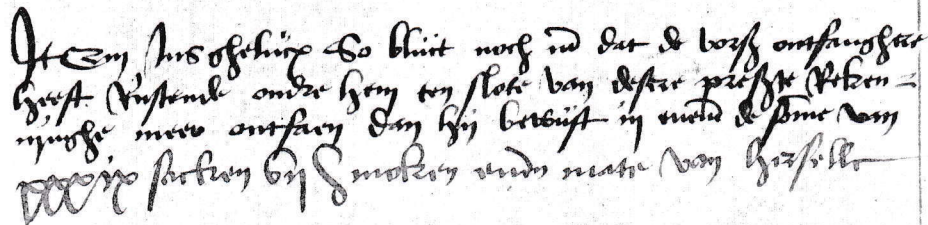 Item Insghelijcx So blijct noch dat de vorsz ontfanghere
heeft Rustende ondre hem ten slote van desere presste Reken-
ninghe meer ontfaen dan hij bewijst in de some van
xxxix sacken vij mate van herselle